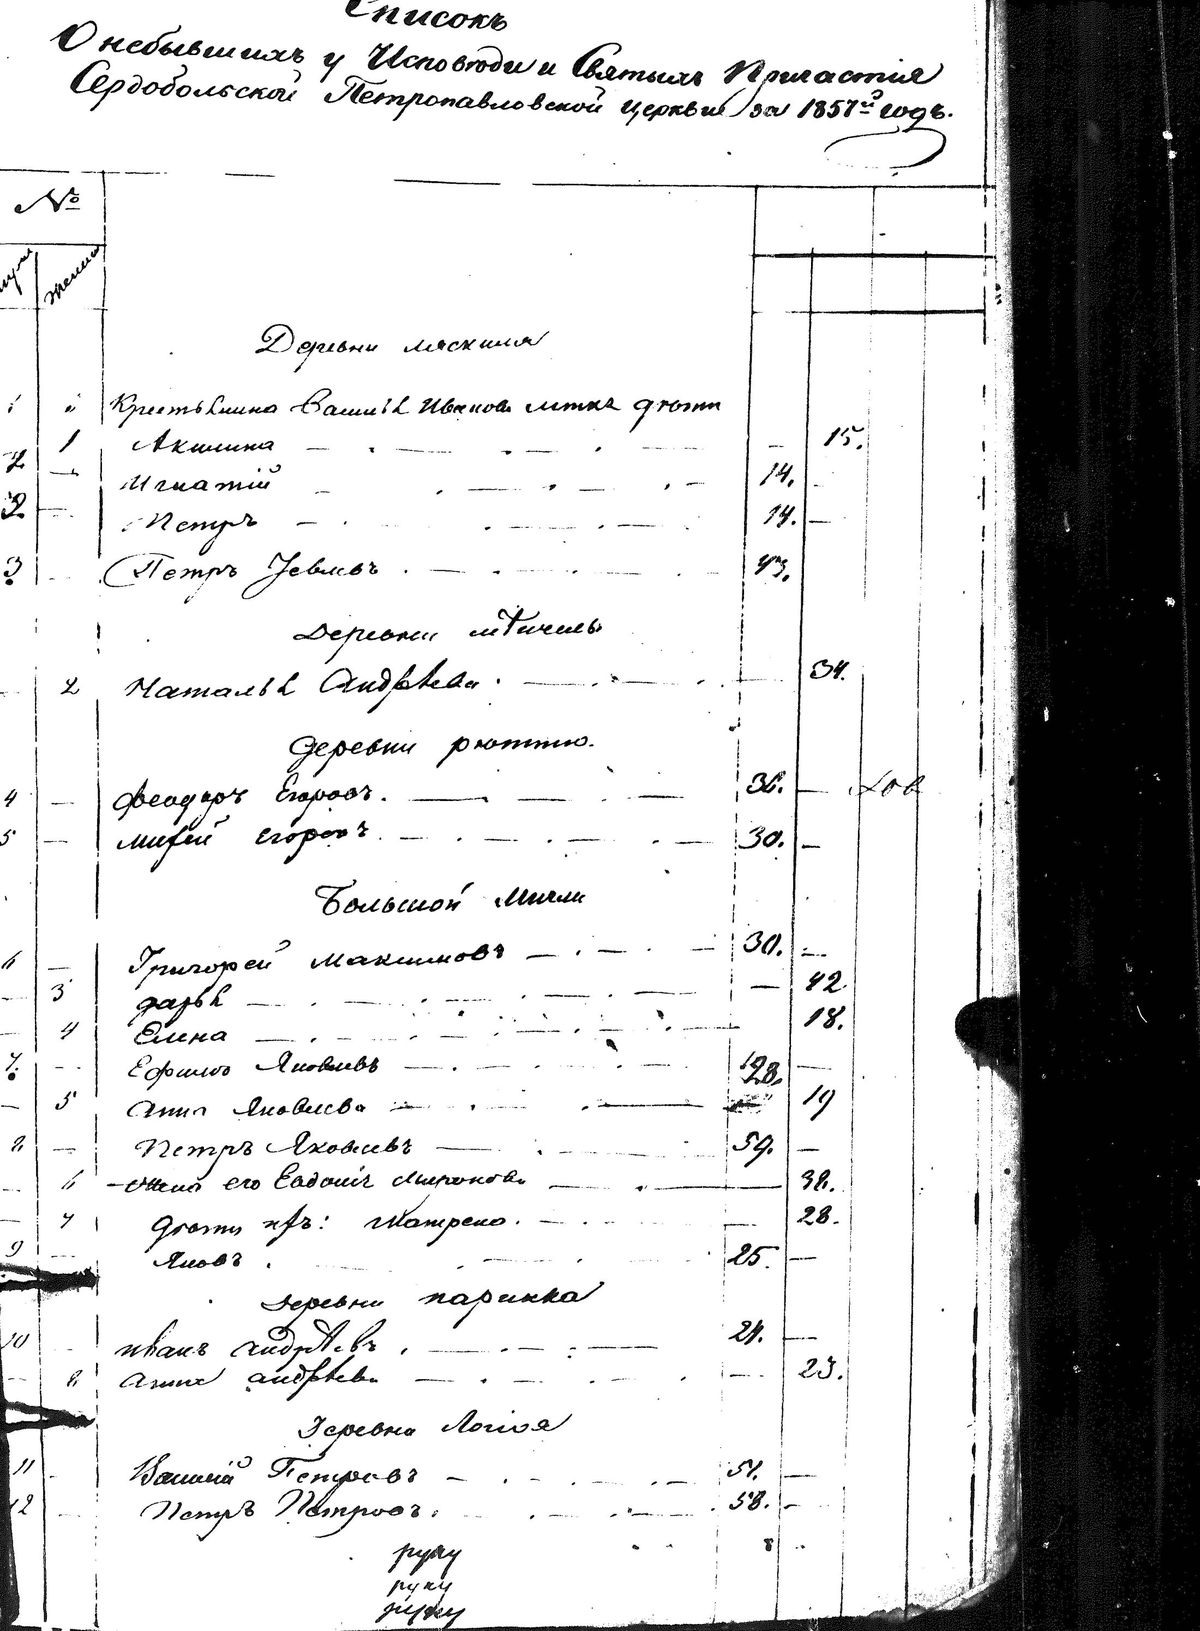 Списокъ
О небывшихъ у Исповѣди и Святыхъ Причастія
Сердобольской Петропавловской церкви за 1857й годъ.
№
муж женска
Деревни ляскиля
Крестьянина Василья Иванова дѣти
1 Акилина — — 15.
2 — Игнатій — 14.
2. — Петръ — 14. —
3 Петръ Іевлевъ — 43.
Деревни
— 2 Наталья Андрѣева — — 34.
Деревни рюттю.
4 — Феодоръ Егоровъ. — 36. —
5 — Егоровъ — 30. —
Большой Мигли
6 — Григорей Максимовъ — 30. —
— 3 Дарья — — 42
— 4 Елена — — 18.
7. — Ефимъ Яковлевъ — 28. —
— 5 Анна Яковлева — 19
8 — Петръ Яковлевъ — 59. —
— 6 жена его Евдокія Миронова — 38.
— 7 дѣти ихъ: Матрена. — — 28.
9 — Яковъ — 25. —
деревни парикка
10 Иванъ Андрѣевъ — 24. —
— 8 Анна Андрѣева — — 23.
Деревни
11 Василій Петровъ — 51. —
12 Петръ Петровъ. — 58. —
руку
руку
руку